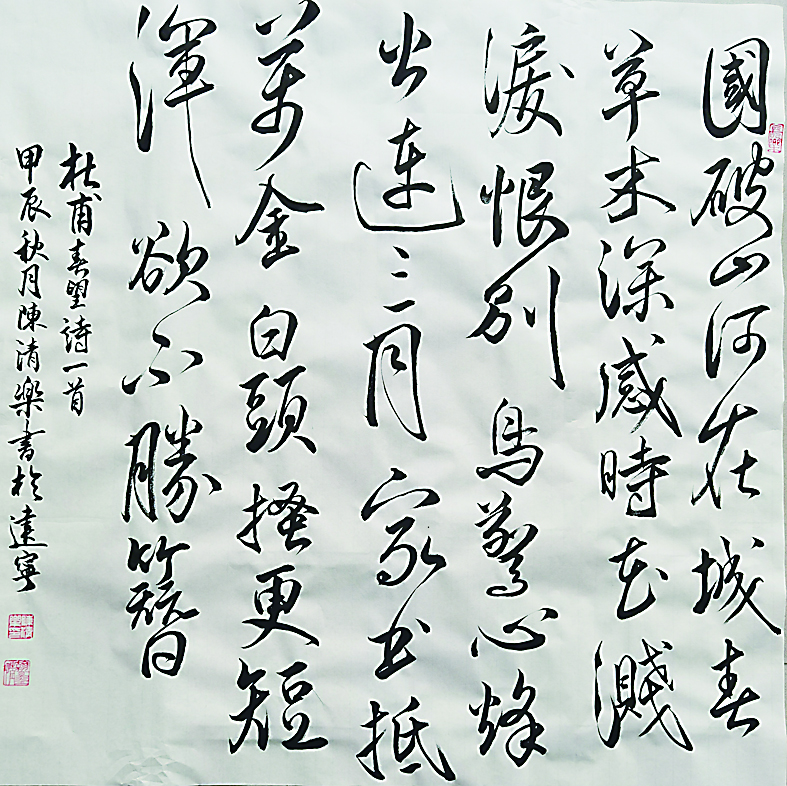 國破山河在城春
草木深感時花濺
淚恨別鳥驚心烽
火連三月家书抵
萬金白頭搔更短
渾欲不勝簪
杜甫春望詩一首
甲辰秋月陳清樂書於遠寧